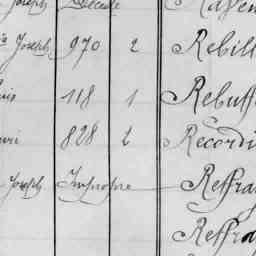 Joseph Décédé
Joseph 970 2 Rebill
uis 118 1 Rebuff
uri 828 2 Recordi
Joseph Impropre Reffra
Reffra